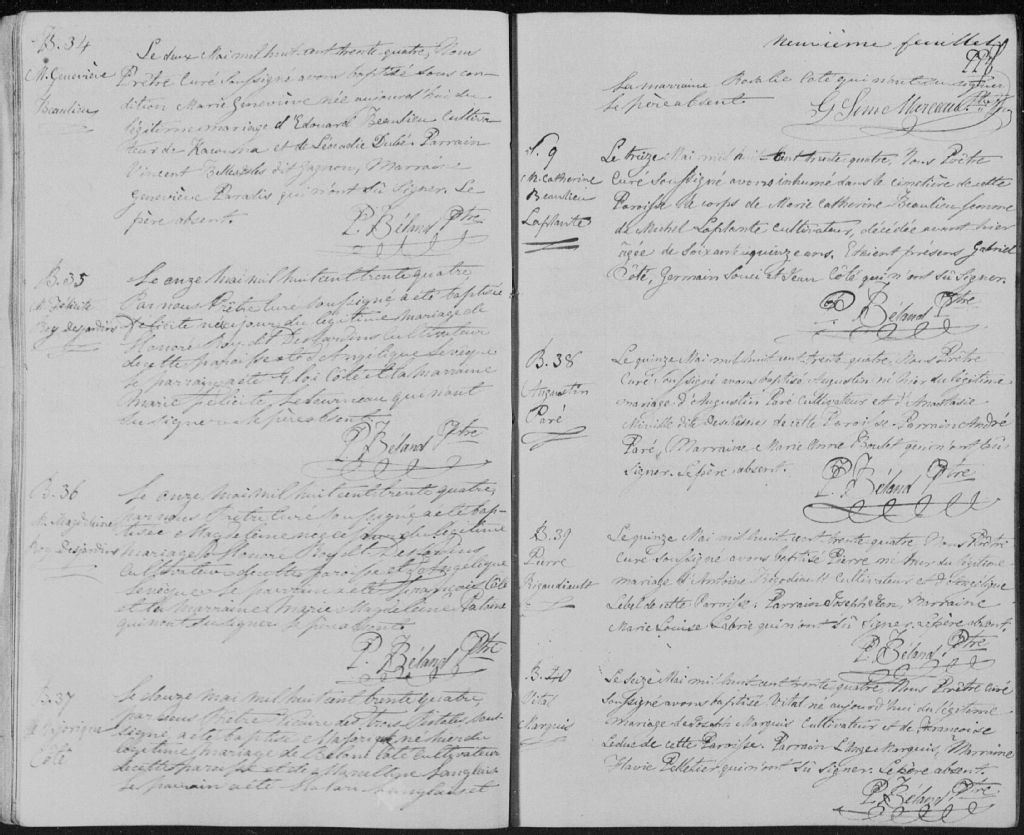 B.34
M. Geneviève
Beaulieu
Le deux Mai mil huit cent trente quatre, Nous
Prêtre Curé Soussigné avons baptisé sous con-
dition Marie Geneviève née aujourd'hui du
légitime mariage d'Edouard Beaulieu Cultiva-
teur de Kacouna et de Léocadie Dubé. Parrain
Vincent dit Gagnon, Marraine
Geneviève Paradis qui n'ont sû signer. Le
père absent.
P. Béland Ptre
B.35
M. Félicité
Roy desjardins
Le onze Mai mil huit cent trente quatre,
Par nous Prêtre Curé soussigné a été baptisée
Félicité née ce jour du légitime mariage de
Honoré Roy dit Desjardins Cultivateur
de cette paroisse et de Angélique Levèque
le parrain a été Eloi Côté et la marraine
Marie félicité qui n'ont
su signer le père absent
P. Béland Ptre
B.36
M. Magdeleine
Roy desjardins
Le onze Mai mil huit cent trente quatre,
par nous Prêtre Curé soussigné a été bap-
tisée Magdeleine née ce jour du légitime
mariage de Honoré Roy dit Desjardins
Cultivateur de cette paroisse et d'Angélique
Levèque le parrain a été François Côté
et la Marraine Marie Magdeleine
qui n'ont su signer le père absent
P. Béland Ptre
B.37
M. Majorique
Côté
Le douze mai mil huit cent trente quatre,
par nous Prêtre Vicaire des trois Pistoles sous-
signé a été baptisé Majorique né hier du
légitime mariage de Côté Cultivateur
de cette paroisse et de Langlais
le parrain a été Langlais et
neuvième feuillet 9
La marraine Rosalie Côté qui n'ont su signer
le père absent.
G Marceau Ptre
S. 9
M. Catherine
Beaulieu
Laplante
Le treize Mai mil huit cent trente quatre, Nous Prêtre
Curé Soussigné avons inhumé dans le cimetière de cette
Paroisse le corps de Marie Catherine Beaulieu femme
de Michel Laplante Cultivateur, décédée avant hier
âgée de soixante quinze ans. Etaient présens Gabriel
Côté, Germain et Jean Côté qui n'ont sû signer.
P. Béland Ptre
B.38
Augustin
Paré
Le quinze Mai mil huit cent trente quatre, Nous Prêtre
Curé Soussigné avons baptisé Augustin né hier du légitime
mariage d'Augustin Paré Cultivateur et d'Anastasie
Miville dite Deschênes de cette Paroisse. Parrain André
Paré, Marraine Marie Anne Boulet qui n'ont sû
signer. Le père absent.
P. Béland, Ptre
B.39
Pierre
Rioudieult
Le quinze Mai mil huit cent trente quatre Nous Prêtre
Curé Soussigné avons baptisé Pierre né hier du légitime
mariage d'Antoine Cultivateur et d'Angélique
Lebel de cette Paroisse. Parrain Joseph Jean, Marraine
Marie Louise Labrie qui n'ont sû signer. Le père absent.
P. Béland, Ptre
B.40
Vital
Marquis
Le seize Mai mil huit cent trente quatre, Nous Prêtre Curé
Soussigné avons baptisé Vital né aujourd'hui du légitime
mariage de Joseph Marquis Cultivateur et de Françoise
Leduc de cette Paroisse. Parrain L'Ange Marquis, Marraine
Flavie Pelletier qui n'ont sû signer. Le père absent.
P. Béland, Ptre